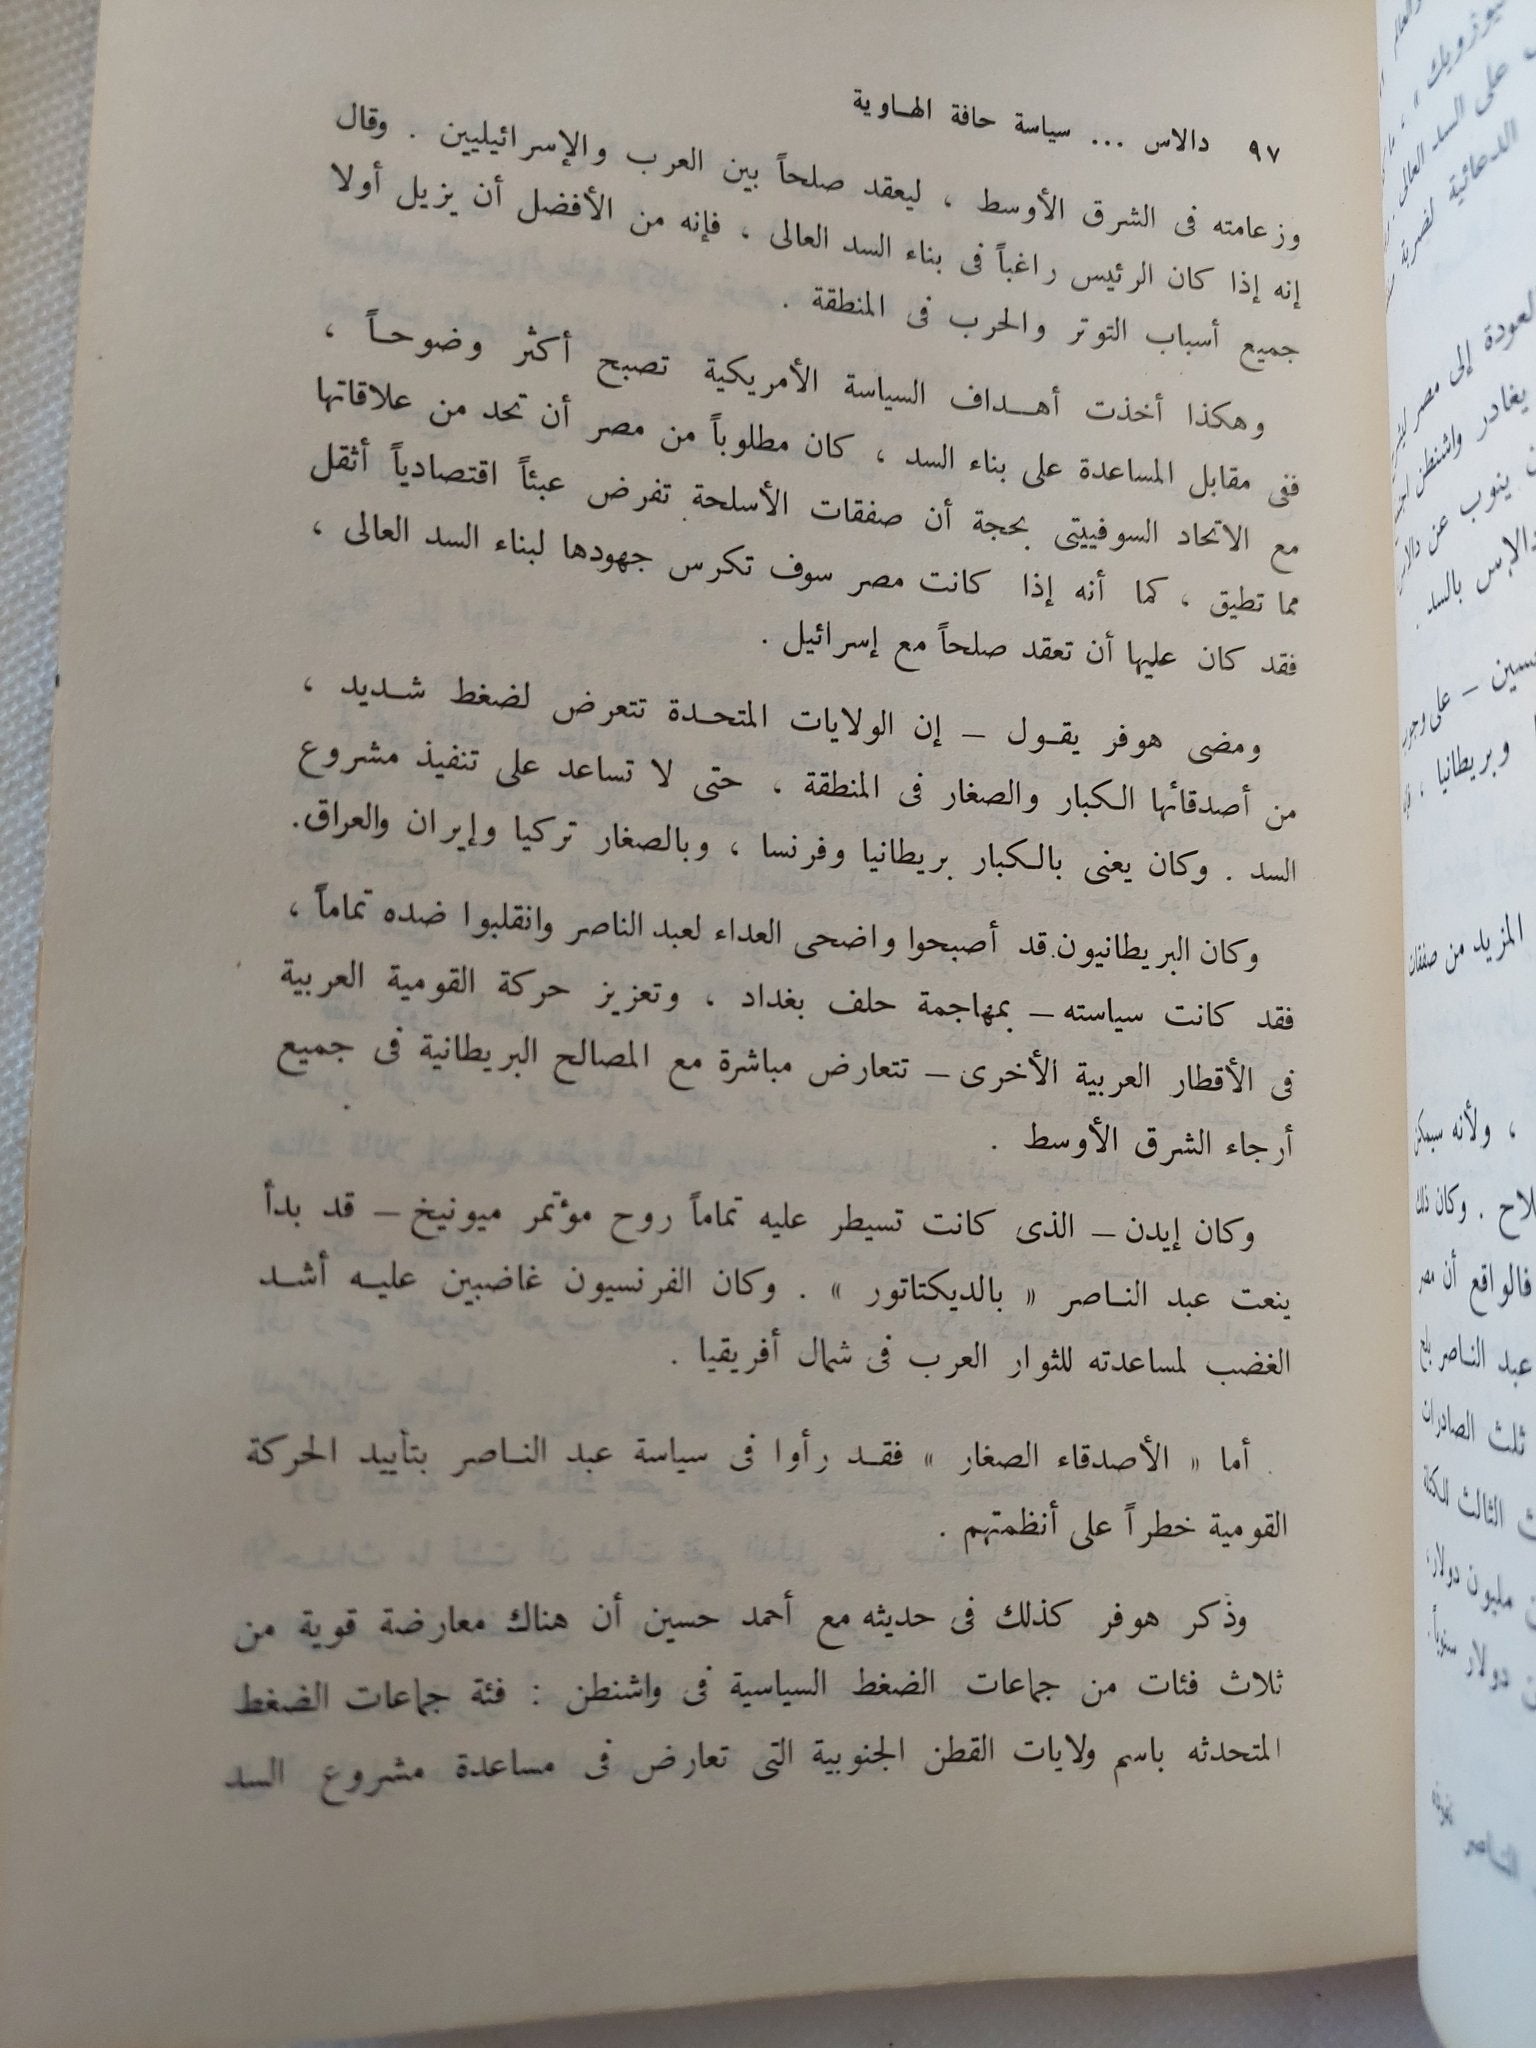 ٩٧ دالاس ... سياسة حافة الهاوية
وزعامته فى الشرق الأوسط ، ليعقد صلحاً بين العرب والإسرائيليين . وقال
إنه إذا كان الرئيس راغباً فى بناء السد العالى ، فإنه من الأفضل أن يزيل أولا
جميع أسباب التوتر والحرب فى المنطقة .
وهكذا أخذت أهداف السياسة الأمريكية تصبح أكثر وضوحاً ،
ففى مقابل المساعدة على بناء السد ، كان مطلوباً من مصر أن تحد من علاقاتها
مع الاتحاد السوفييتى بحجة أن صفقات الأسلحة تفرض عبئاً اقتصادياً أثقل
مما تطيق ، كما أنه إذا كانت مصر سوف تكرس جهودها لبناء السد العالى ،
فقد كان عليها أن تعقد صلحاً مع إسرائيل .
ومضى هوفر يقول – إن الولايات المتحدة تتعرض لضغط شديد ،
من أصدقائها الكبار والصغار فى المنطقة ، حتى لا تساعد على تنفيذ مشروع
السد . وكان يعنى بالكبار بريطانيا وفرنسا ، وبالصغار تركيا وإيران والعراق.
وكان البريطانيون قد أصبحوا واضحى العداء لعبد الناصر وانقلبوا ضده تماماً ،
فقد كانت سياسته – بمهاجمة حلف بغداد ، وتعزيز حركة القومية العربية
فى الأقطار العربية الأخرى – تتعارض مباشرة مع المصالح البريطانية فى جميع
أرجاء الشرق الأوسط .
وكان إيدن – الذى كانت تسيطر عليه تماماً روح مؤتمر ميونيخ – قد بدأ
ينعت عبد الناصر « بالديكتاتور » . وكان الفرنسيون غاضبين عليه أشد
الغضب لمساعدته للثوار العرب فى شمال أفريقيا .
أما « الأصدقاء الصغار » فقد رأوا فى سياسة عبد الناصر بتأييد الحركة
القومية خطراً على أنظمتهم .
وذكر هوفر كذلك فى حديثه مع أحمد حسين أن هناك معارضة قوية من
ثلاث فئات من جماعات الضغط السياسية فى واشنطن : فئة جماعات الضغط
المتحدثه باسم ولايات القطن الجنوبية التى تعارض فى مساعدة مشروع السد
على السد العالى
الدعائية لضربة
لعودة إلى مصر
يغادر واشنطن
ينوب عن
بالسد .
– على
وبريطانيا ،
المزيد من صفقات
، ولأنه سيمكن
. وكان ذلك
فالواقع أن مصر
عبد الناصر
ثلث الصادرات
الثالث للكتلة
مليون دولار
دولار سنوياً